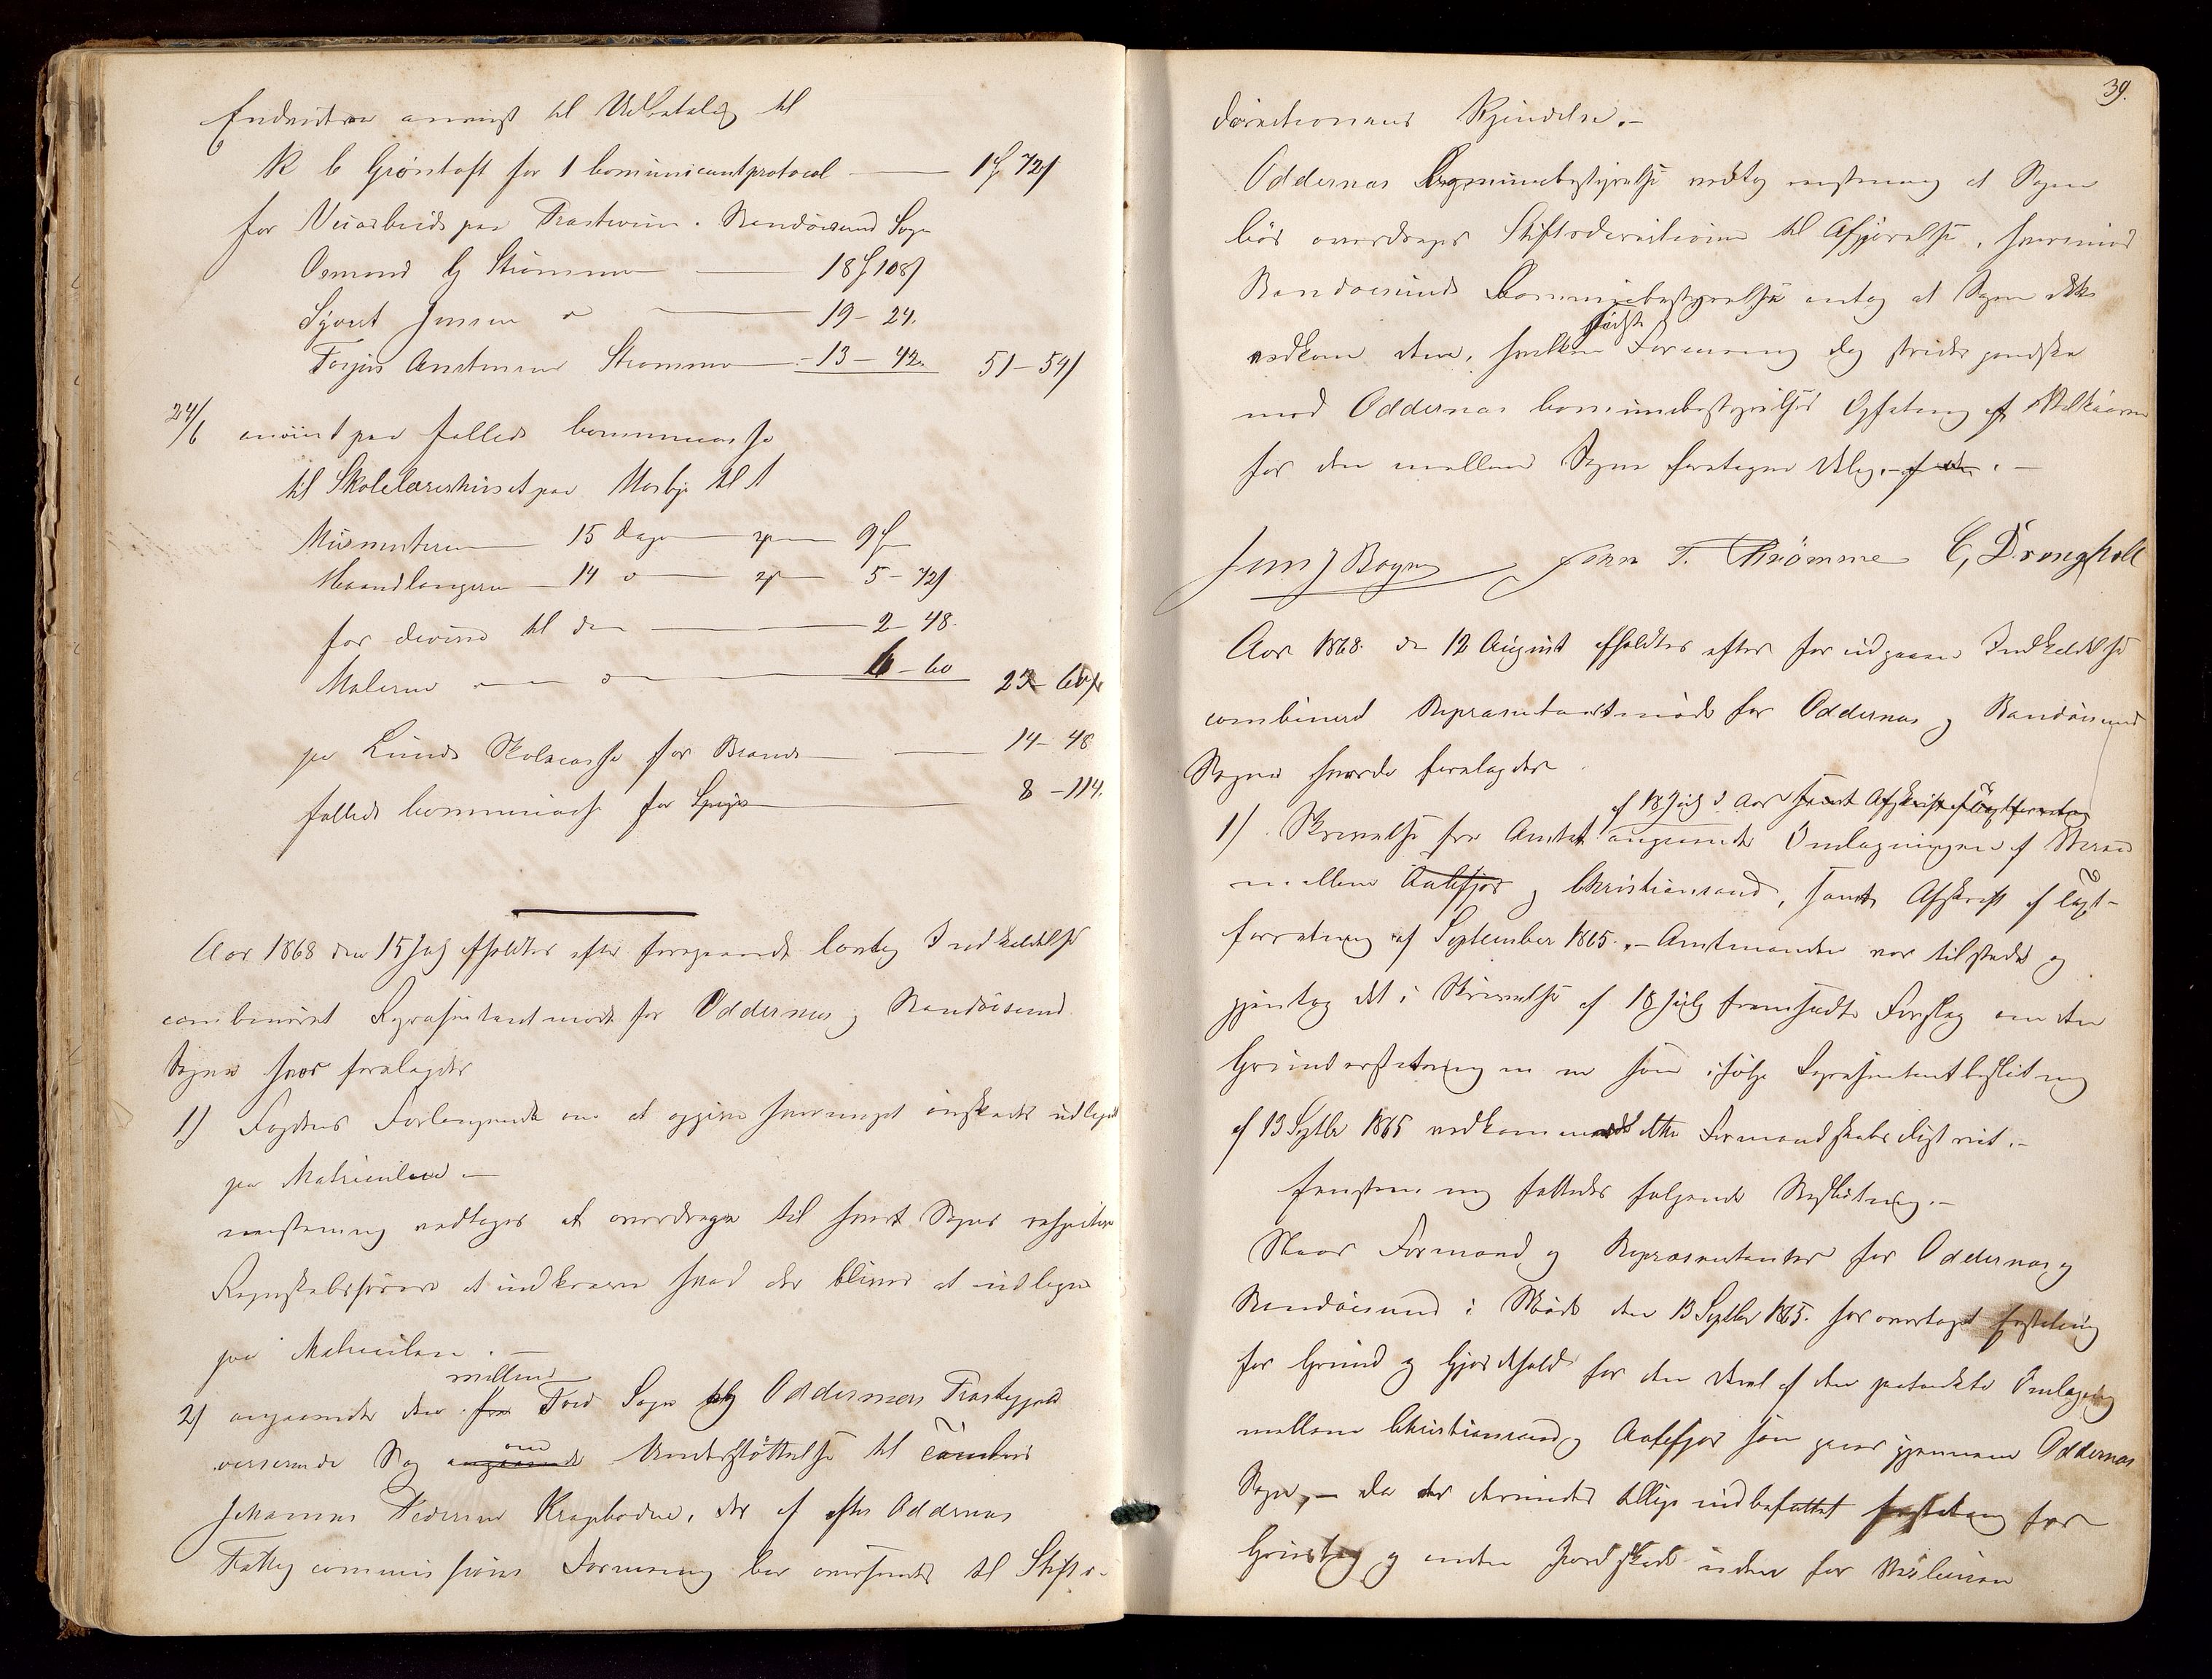 Endvidere anvist til Udbetaling til
K C Grøntoft for 1 Communicantprotocol — 1 72
for Veiarbeide paa Prasteveien. Randøesund Sogn
Osmund G Strømme — 18 108
Syvert Jensen — 19 - 24.
Torjus Anstensen Strømme — 13 - 42. 51 - 54
24/6 anviist paa falleds Communecasse
til Skolelærerhuset paa Mosby til
Muurmesteren — 15 Dage — 9
Haandlangeren — 14 — 5 - 72
for Diverse til do — 2 - 48.
Maleren — 6 - 60 23 - 60
paa Lunds Skolecasse for Brænde — 14 - 48
falleds Communecasse for — 8 - 114.
Aar 1868 den 15 July afholdtes efter foregaaende lovlig Indkaldelse
combineret Repræsentantmøde for Oddernes og Randøesund
Sogne hvor forelagdes
1) Fogdens Forlangende om at opgive hvormeget ønskedes udlignet
paa Matriculen. —
eenstemmig vedtoges at overdrages til hvert Sogns respective
Regnskabsfører at indkræve hvad der bliver at udligne
paa Matriculen. —
2) angaaende den fra mellem Tveid Sogn og Oddernes Præstegjeld
verserende Sag angaaende om Understøttelse til
Johannes Pedersen Kragebodne, der af efter Oddernes
Fattigcommissions Formening bør oversendes til Stifts-
39.
directionens Kjendelse. —
Oddernes Communebestyrelse vedtog eenstemmig at Sagen
bør overdrages Stiftsdirectionen til Afgjørelse, hvorimod
Randøesunds Communebestyrelse antog at Sagen ikke
vedkom dem, hvilken sidste Formening dog strider ganske
mod Oddernes Communebestyrelses Opfatning af Vilkaarene
for den mellem Sogne foretagne Deling. —
Jens J Boyne John T. Strømme C, Drangholt
Aar 1868. den 12 August afholdtes efter forudgaaen Indkaldelse
combineret Repræsentantmøde for Oddernes og Randøesund
Sogne hvorda forelagdes
1) Skrivelse fra Amtet af 18 July d Aar samt Afskrift af angaaende Omlægningen af Veien
mellem Aalefjær og Christiansand, samt Afskrift af
forretning af September 1865. — Amtmanden var tilstede og
gjentog det i Skrivelse af 18 July fremsatte Forslag om den
Grunderstatning m m som ifølge Repræsentantbeslutning
af 13 Septbr 1865 vedkommende dette Formandskabsdistrict. —
Eenstemmig fattedes følgende Beslutning. —
Naar Formænd og Repræsentanter for Oddernes og
Randøesund i Møde den 13 Septbr 1865. har overtaget Erstatning
for Grund og Gjerdehold for den Deel af den paatænkte Omlægning
mellem Christiansand og Aalefjær som gaaer gjennem Oddernes
Sogn, — da er derunder tillige indbefattet Erstatning for
Gruustag og anden Jordskade uden for Veilinien